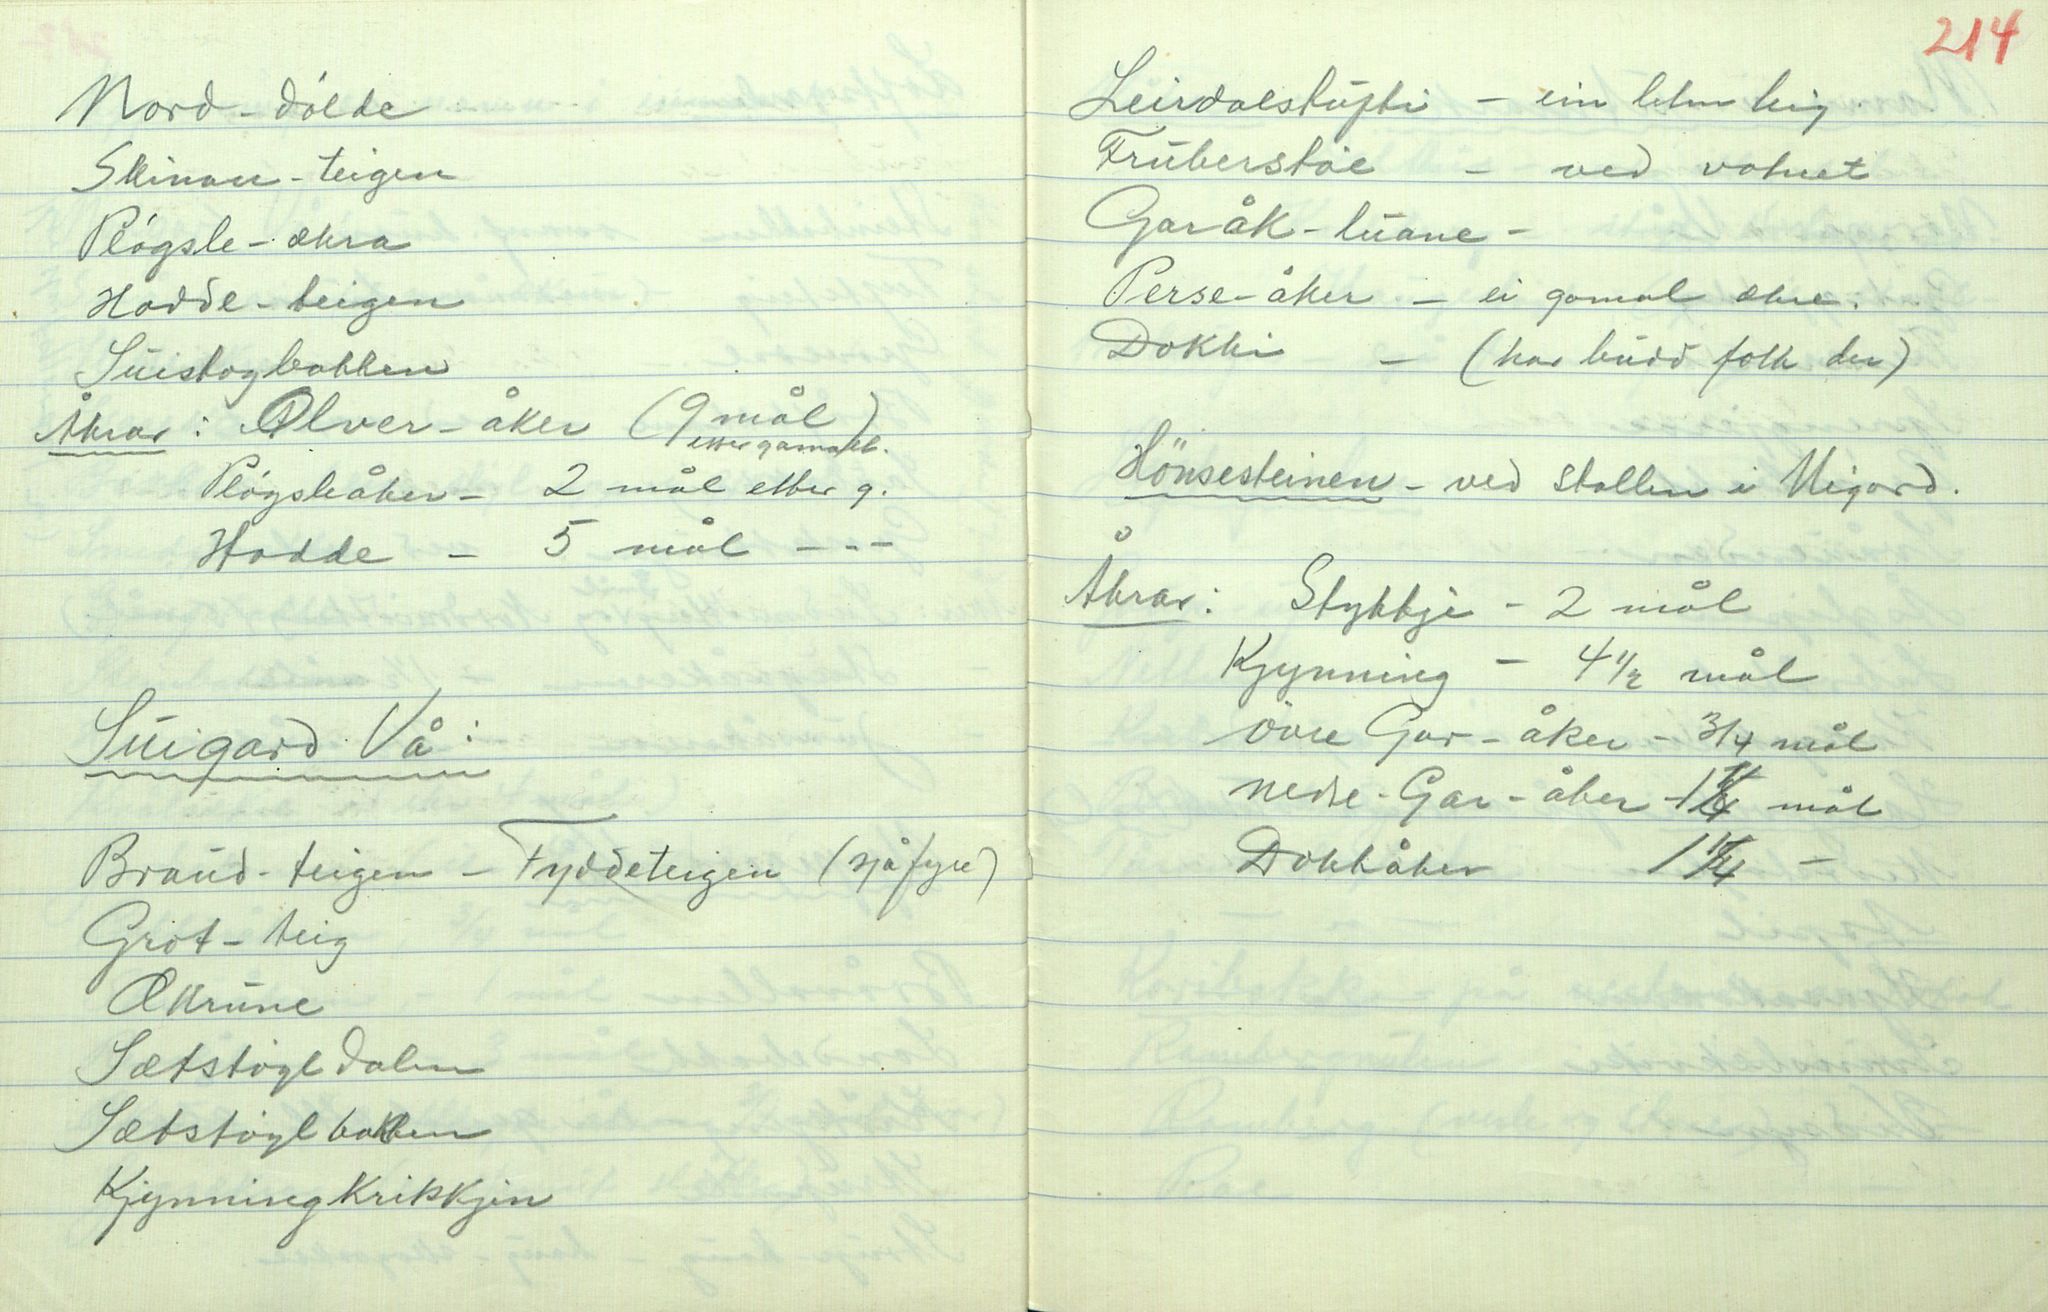 Nord-dólde
Skinan-teigen
Plógsle-økra
Hodde-teigen
Súistogbakken
Åkrar: Ølver-åker (9 mål etter gamalt.)
Plógsleåker - 2 mål etter g.
Hodde - 5 mål - - -
Súigard Vå:
Braúd-teigen - Fyddeteigen (sjå fyre)
Grot-teig
Økrúne
Sætstøyldalen
Sætstøylbakken
Kjynningkrikkjen
214
Leirdalstúfti - ein liten teig
Frúberstøe - ved vatnet
Garåk-lúane -
Perse-åker - ei gomol økre.
Dokki - (har búdd folk der)
Hönsesteinen - ved stallen i Nigard.
Åkrar: Stykkje - 2 mål
Kjynning - 4 1/2 mål
övre Gar-åker - 3/4 mål
nedre-Gar-åker - 1 1/4 mål
Dokkåker 1 1/4 -